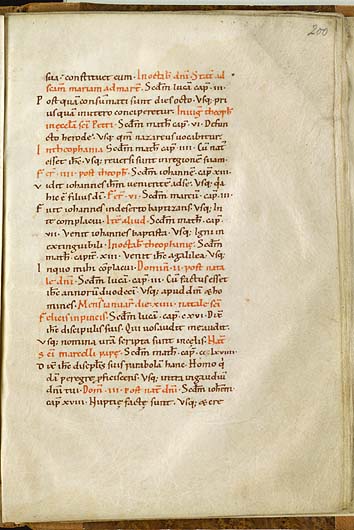 200
sua · constituet eum · In octab dnī. Statī ad
scam mariam ad martẏ. Scdm lucā cap̄ · III ·
Postquā consumati sunt dies octo · Usq; pri
usquā in utero conciperetur. In uiḡ theoph
in eccla scī Petri · Scdm math cap̄ · VI · Defun
cto herode · Usq; qm̄ nazareus uocabitur.
In theophania Scdm math cap̄ · IIII · Cū nat
esset ihc · Usq; reuersi sunt in regionem suam.
Fēr · IIII · post theoph. Scdm iohannē cap̄ · XIII ·
Uidit iohannes ihm uenientē ad se · Usq; qa
hic ē filius dī · Fēr · VI · Scdm marcū cap̄ · III ·
Fuit iohannes in deserto baptizans · Usq; In
te complacui · Itē aliud · Scdm math · cap̄ ·
VII · Venit iohannes baptista · Usq; Igni in
extinguibili · In octab theophanię · Scdm
math cap̄ · XIII · Venit ihc a galilea · Usq;
In quo mihi cōplacui · Domin · II · post nata
le dnī · Scdm lucā cap̄ · III · Cū factus esset
ihc annorū duodecī · Usq; apud dm̄ & ho
mines · Mens ianuar die XIIII · natale scī
Felicis in pincis · Scdm lucā cap̄ · CXVI · Dix
ihc discipulis suis · Qui uos audit me audit ·
Usq; nomina urā scripta sunt in celis · Nat
scī marcelli papę · Scdm math cap̄ · CCLXVIII ·
Dix ihc discipłs suis parabolā hanc · Homo q
dā peregre pficiscens · Usq; intra in gaudiū
dnī tui · Dom · III · post nat dnī · Scdm iohem
cap̄ XVIII · Nuptię factę sunt · Usq; & cre